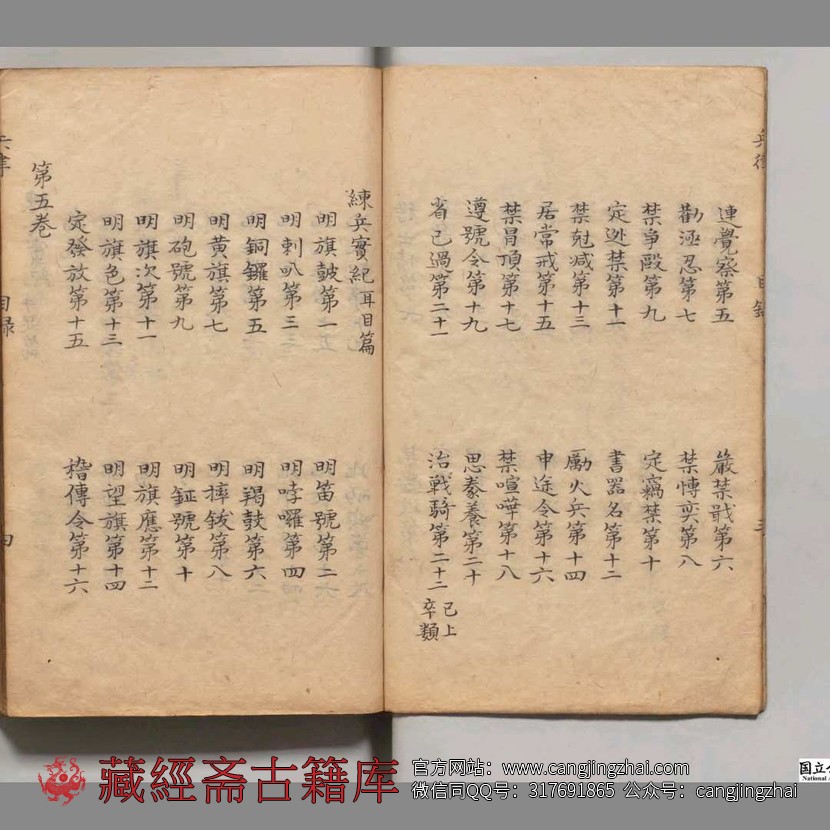 連覺察第五 嚴禁戢第六
勸涵忍第七 禁慱奕第八
禁爭毆第九 定竊禁第十
定迯禁第十一 書器名第十二
禁尅减第十三 勵火兵第十四
居常戒第十五 申途令第十六
禁冒頂第十七 禁喧嘩第十八
遵號令第十九 思豢養第二十
省己過第二十一 治戰騎第二十二 已上卒類
練兵實紀 耳目篇
明旗鼓第一 明笛號第二
明剌叭第三 明哱囉第四
明銅鑼第五 明羯鼓第六
明黄旗第七 明摔鈸第八
明砲號第九 明鉦號第十
明旗次第十一 明旗應第十二
明旗色第十三 明望旗第十四
定發放第十五 稽傳令第十六
第五巻
目録
四
藏經斋古籍库
官方网站：www.cangjingzhai.com
微信同QQ号：317691865 公众号：cangjingzhai